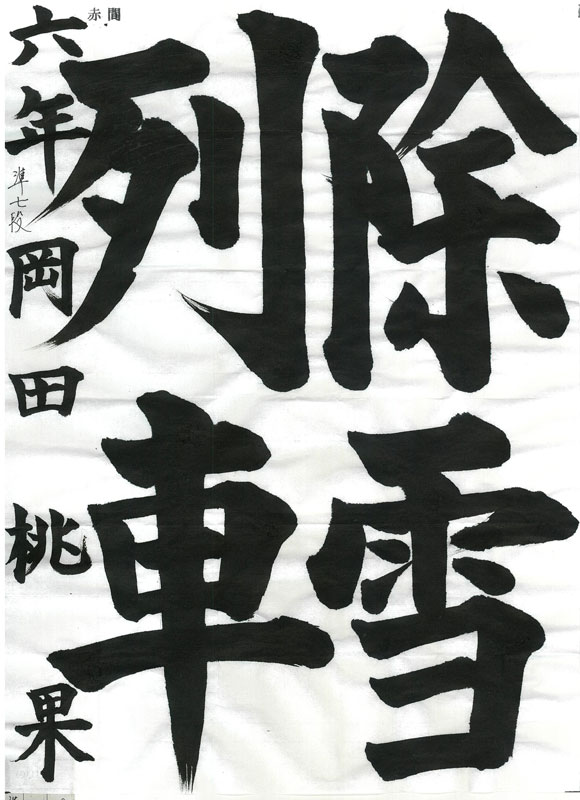 除雪
列車
六年 岡田桃果
準七段
赤間